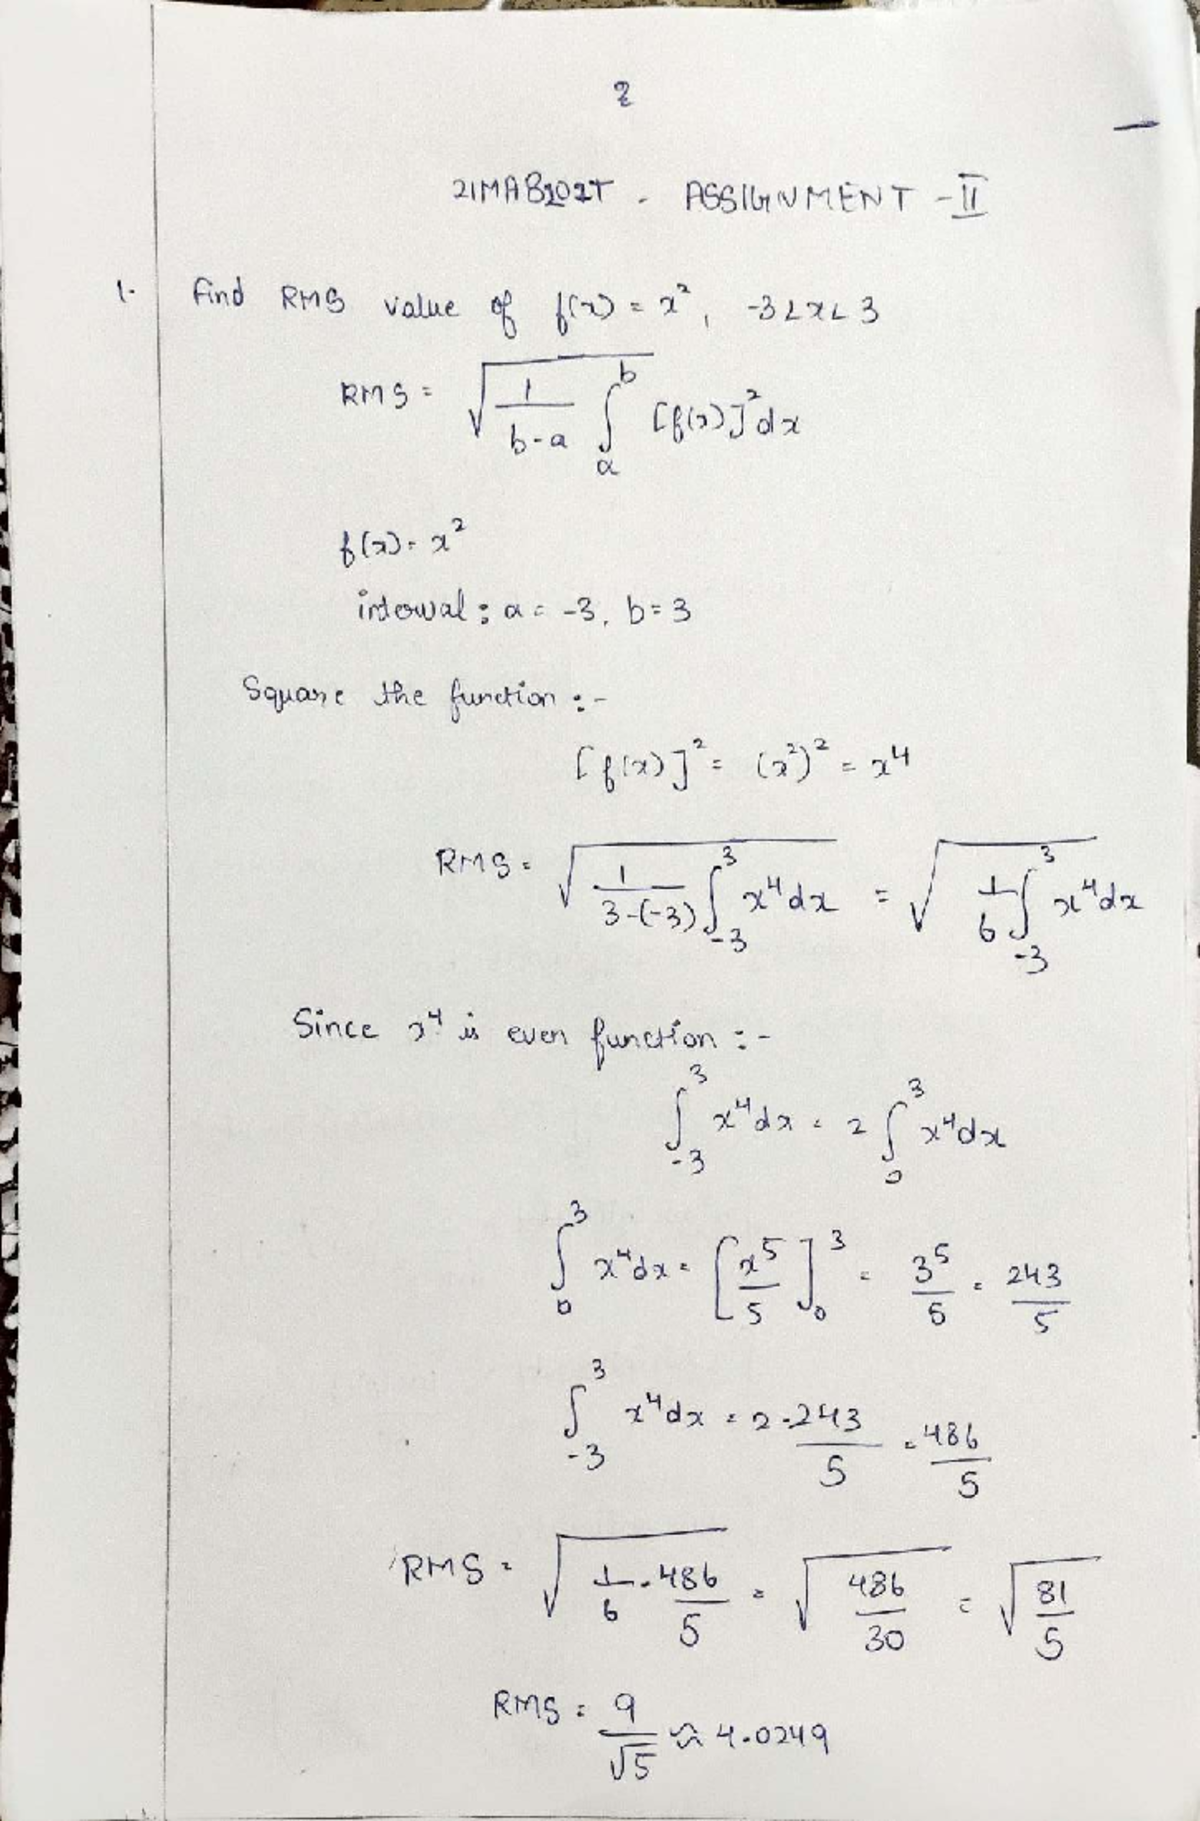 2
21MAB201T - ASSIGNMENT - II
1. Find RMS value of f(x) = x², -3<x<3
RMS = √(1/(b-a) ∫_a^b [f(x)]² dx)
f(x) = x²
interval: a = -3, b = 3
Square the function :-
[f(x)]² = (x²)² = x⁴
RMS = √(1/(3-(-3)) ∫_-3^3 x⁴dx) = √(1/6 ∫_-3^3 x⁴dx)
Since x⁴ is even function :-
∫_-3^3 x⁴dx = 2 ∫_0^3 x⁴dx
∫_0^3 x⁴dx = [x⁵/5]_0^3 = 3⁵/5 = 243/5
∫_-3^3 x⁴dx = 2·243/5 = 486/5
RMS = √(1/6 · 486/5) = √(486/30) = √(81/5)
RMS = 9/√5 ≈ 4.0249